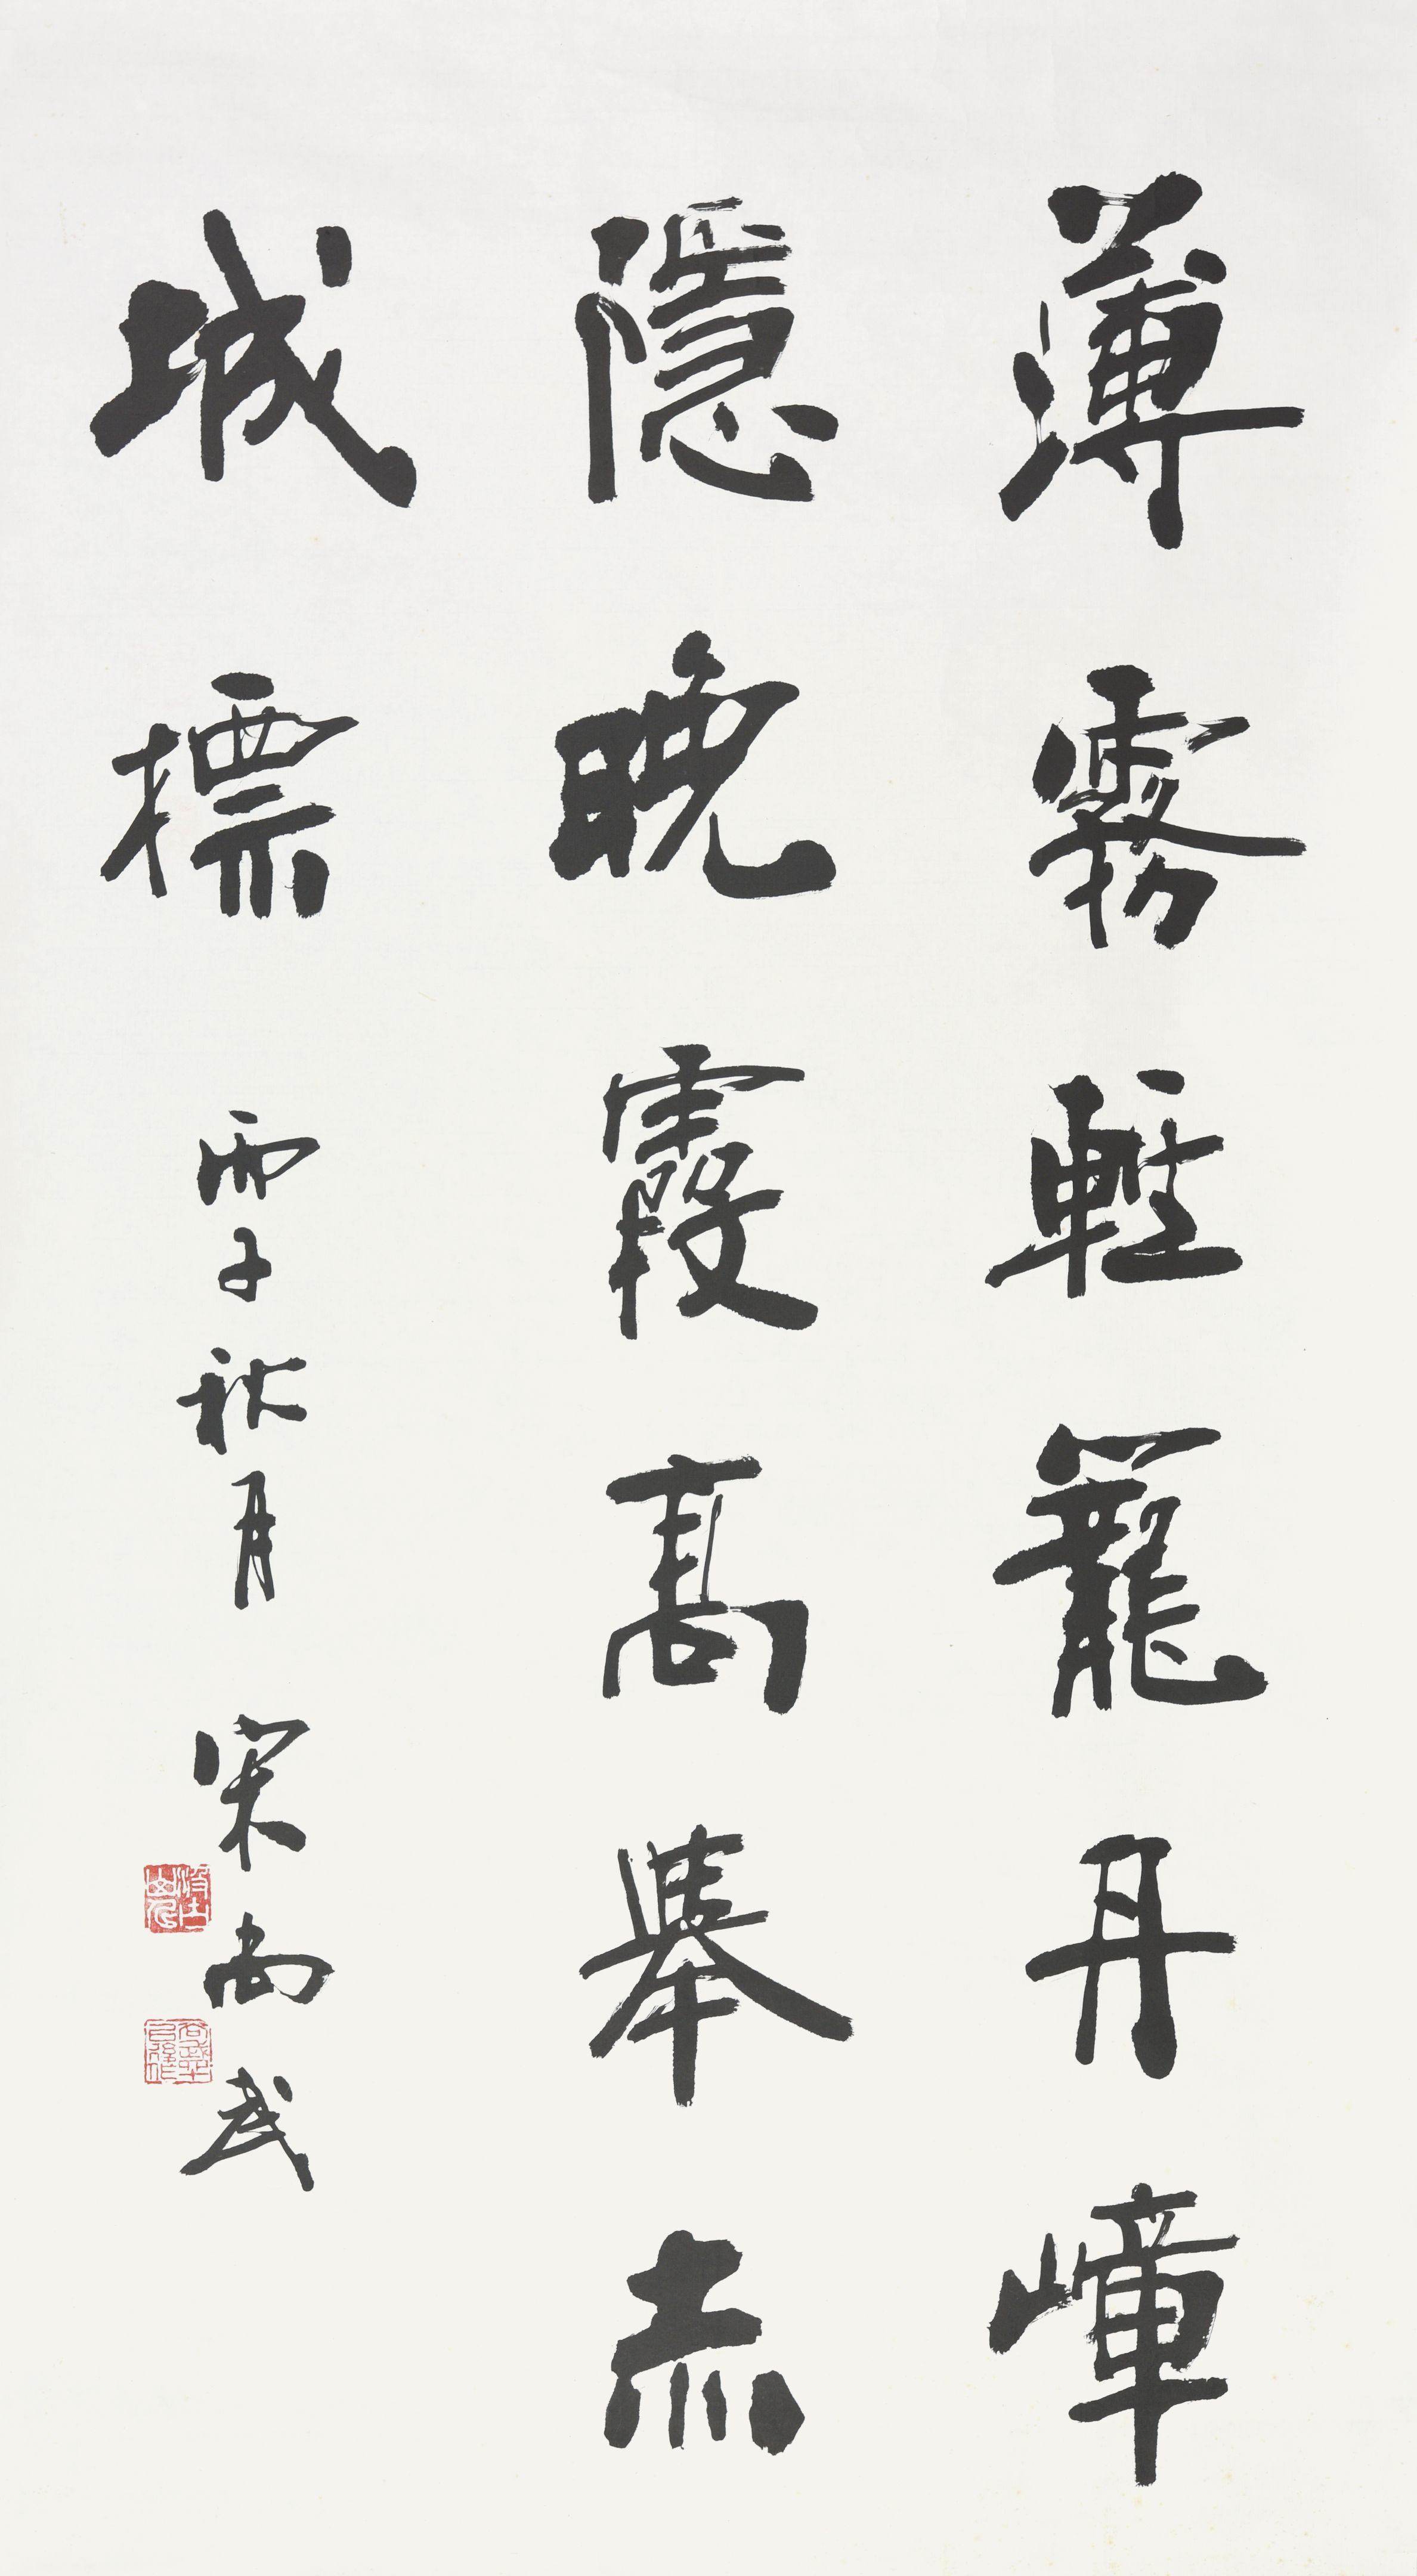 薄霧輕籠丹嶂
隱晚霞高舉赤
城標 丙子秋月 宋尚武